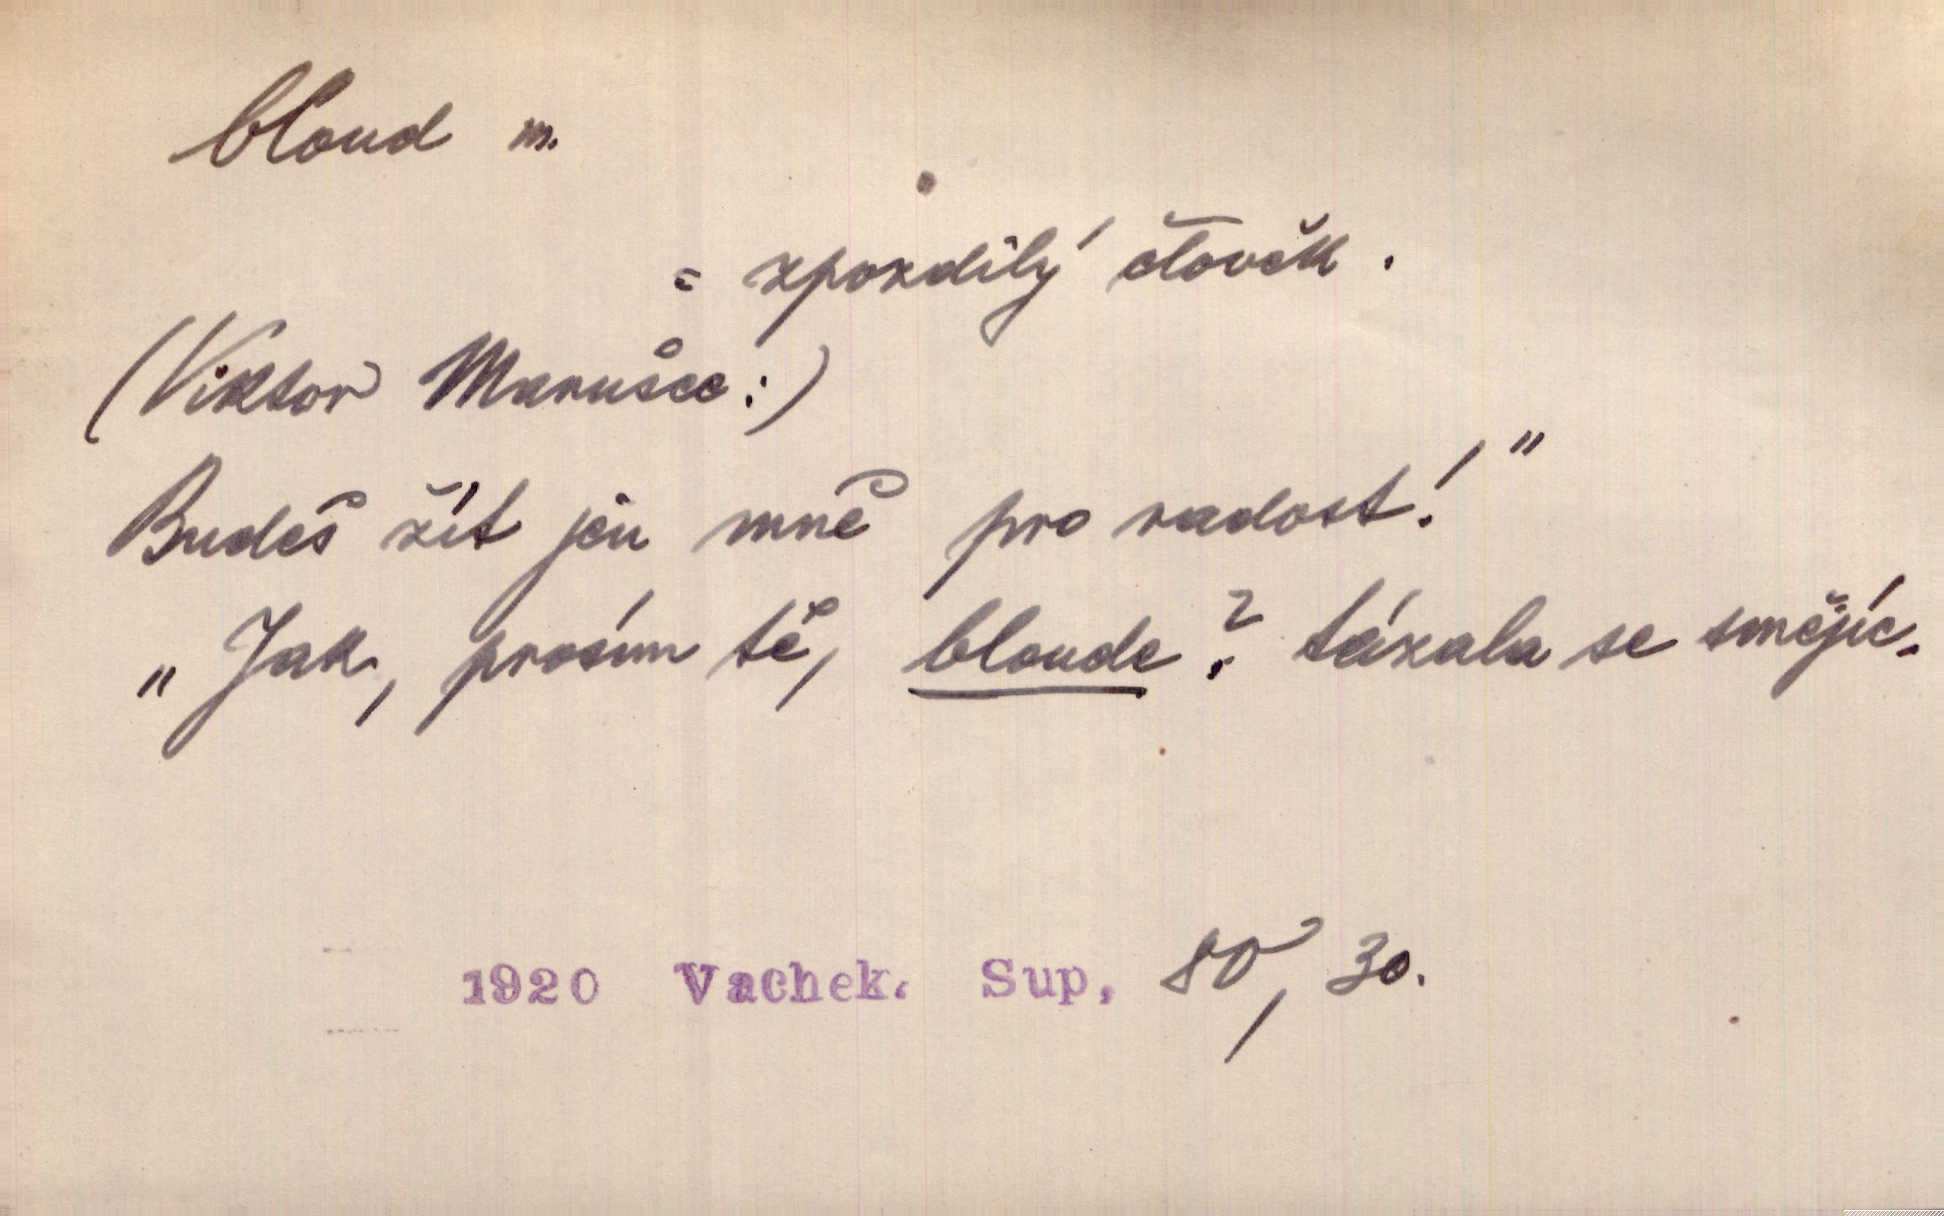 bloud m.
= zpozdilý člověk.
(Viktor Marušce:)
Budeš žít jen mně pro radost!"
„Jak, prosím tě, bloude? tázala se smějíc.
1920 Vachek. Sup. 80, 30.